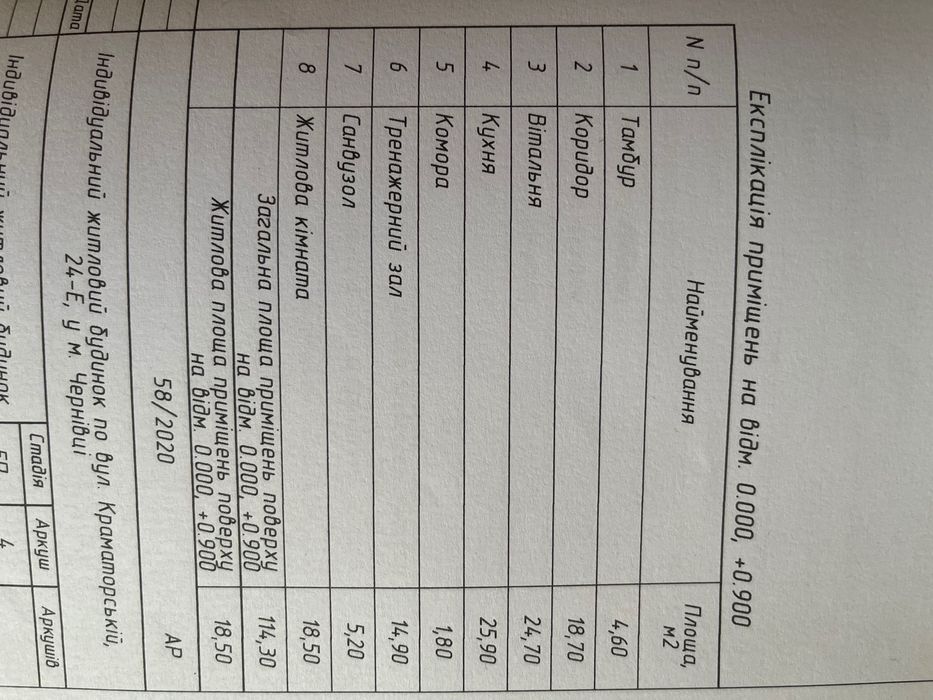 Експлікація приміщень на відм. 0.000, +0.900
N п/п Найменування Площа, м2
1 Тамбур 4,60
2 Коридор 18,70
3 Вітальня 24,70
4 Кухня 25,90
5 Комора 1,80
6 Тренажерний зал 14,90
7 Санвузол 5,20
8 Житлова кімната 18,50
Загальна площа приміщень поверху
на відм. 0.000, +0.900 114,30
Житлова площа приміщень поверху
на відм. 0.000, +0.900 18,50
58/2020 АР
Індивідуальний житловий будинок по вул. Краматорській,
24-Е, у м. Чернівці
Стадія Аркуш Аркушів
Індивідуальний житловий будинок 4